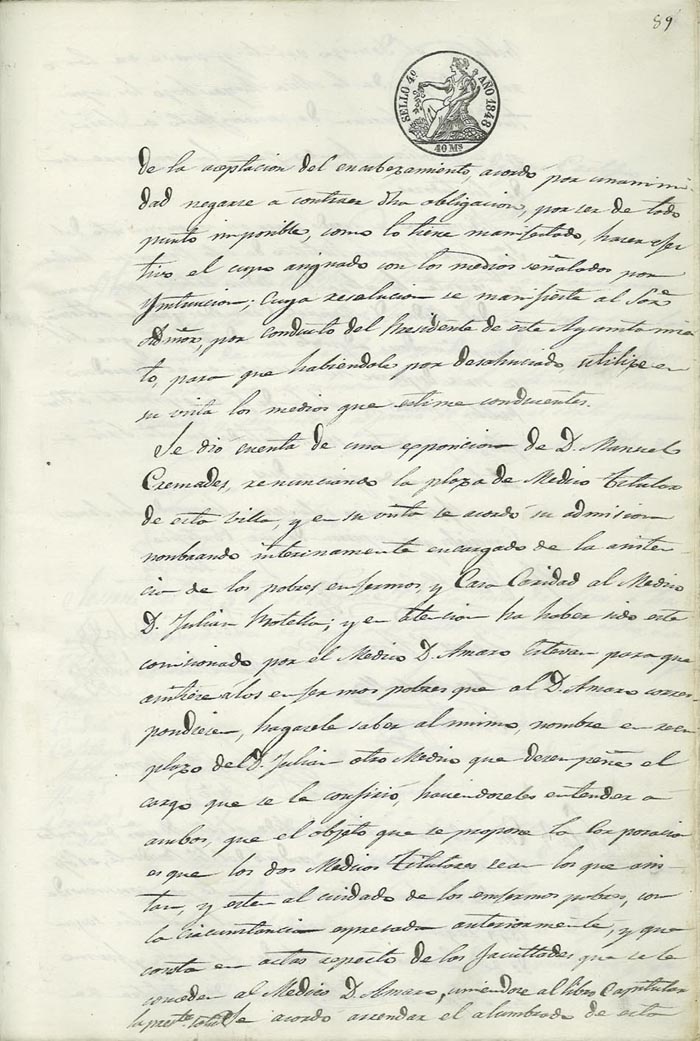 89
SELLO 4º AÑO 1848
40 Ms
de la aceptacion del encabezamiento, acordo por unanimi
dad negarse a contraer dha obligacion, por ser de todo
punto imposible, como lo tiene manifestado, hacer efec
tivo el cupo asignado con los medios señalados por
Ynstruccion; cuya resolucion se manifieste al Sor
Admor, por conducto del Presidente de este Ayuntamien
to, para que habiendole por desahuciado, utilize en
su vista los medios que estime conducentes.
Se dió cuenta de una exposicion de D. Manuel
Cremades, renunciando la plaza de Medico titular
de esta villa, y en su vista se acordó su admision
nombrando interinamente encargado de la asisten
cia de los pobres enfermos, y Casa Caridad al Medico
D. Julian ; y en atencion ha haber sido este
comisionado por el Medico D. Amaro Estevan para que
asistiese a los enfermos pobres que al D. Amaro corres-
pondiesen, hagasele saber al mismo, nombre en reem
plazo del D. Julian otro Medico que desempeñe el
cargo que se la confirió, haciendoseles entender a
ambos, que el objeto que se propone la Corporacion
es que los dos Medicos titulares sean los que asis-
tan, y esten al cuidado de los enfermos pobres, con
la circunstancia espresada anteriormente, y que
consta en actas respecto de las facultades que se le
conceden al Medico D. Amaro, uniendose al libro Capitular
la preste Se acordó arrendar el alumbrado de esta